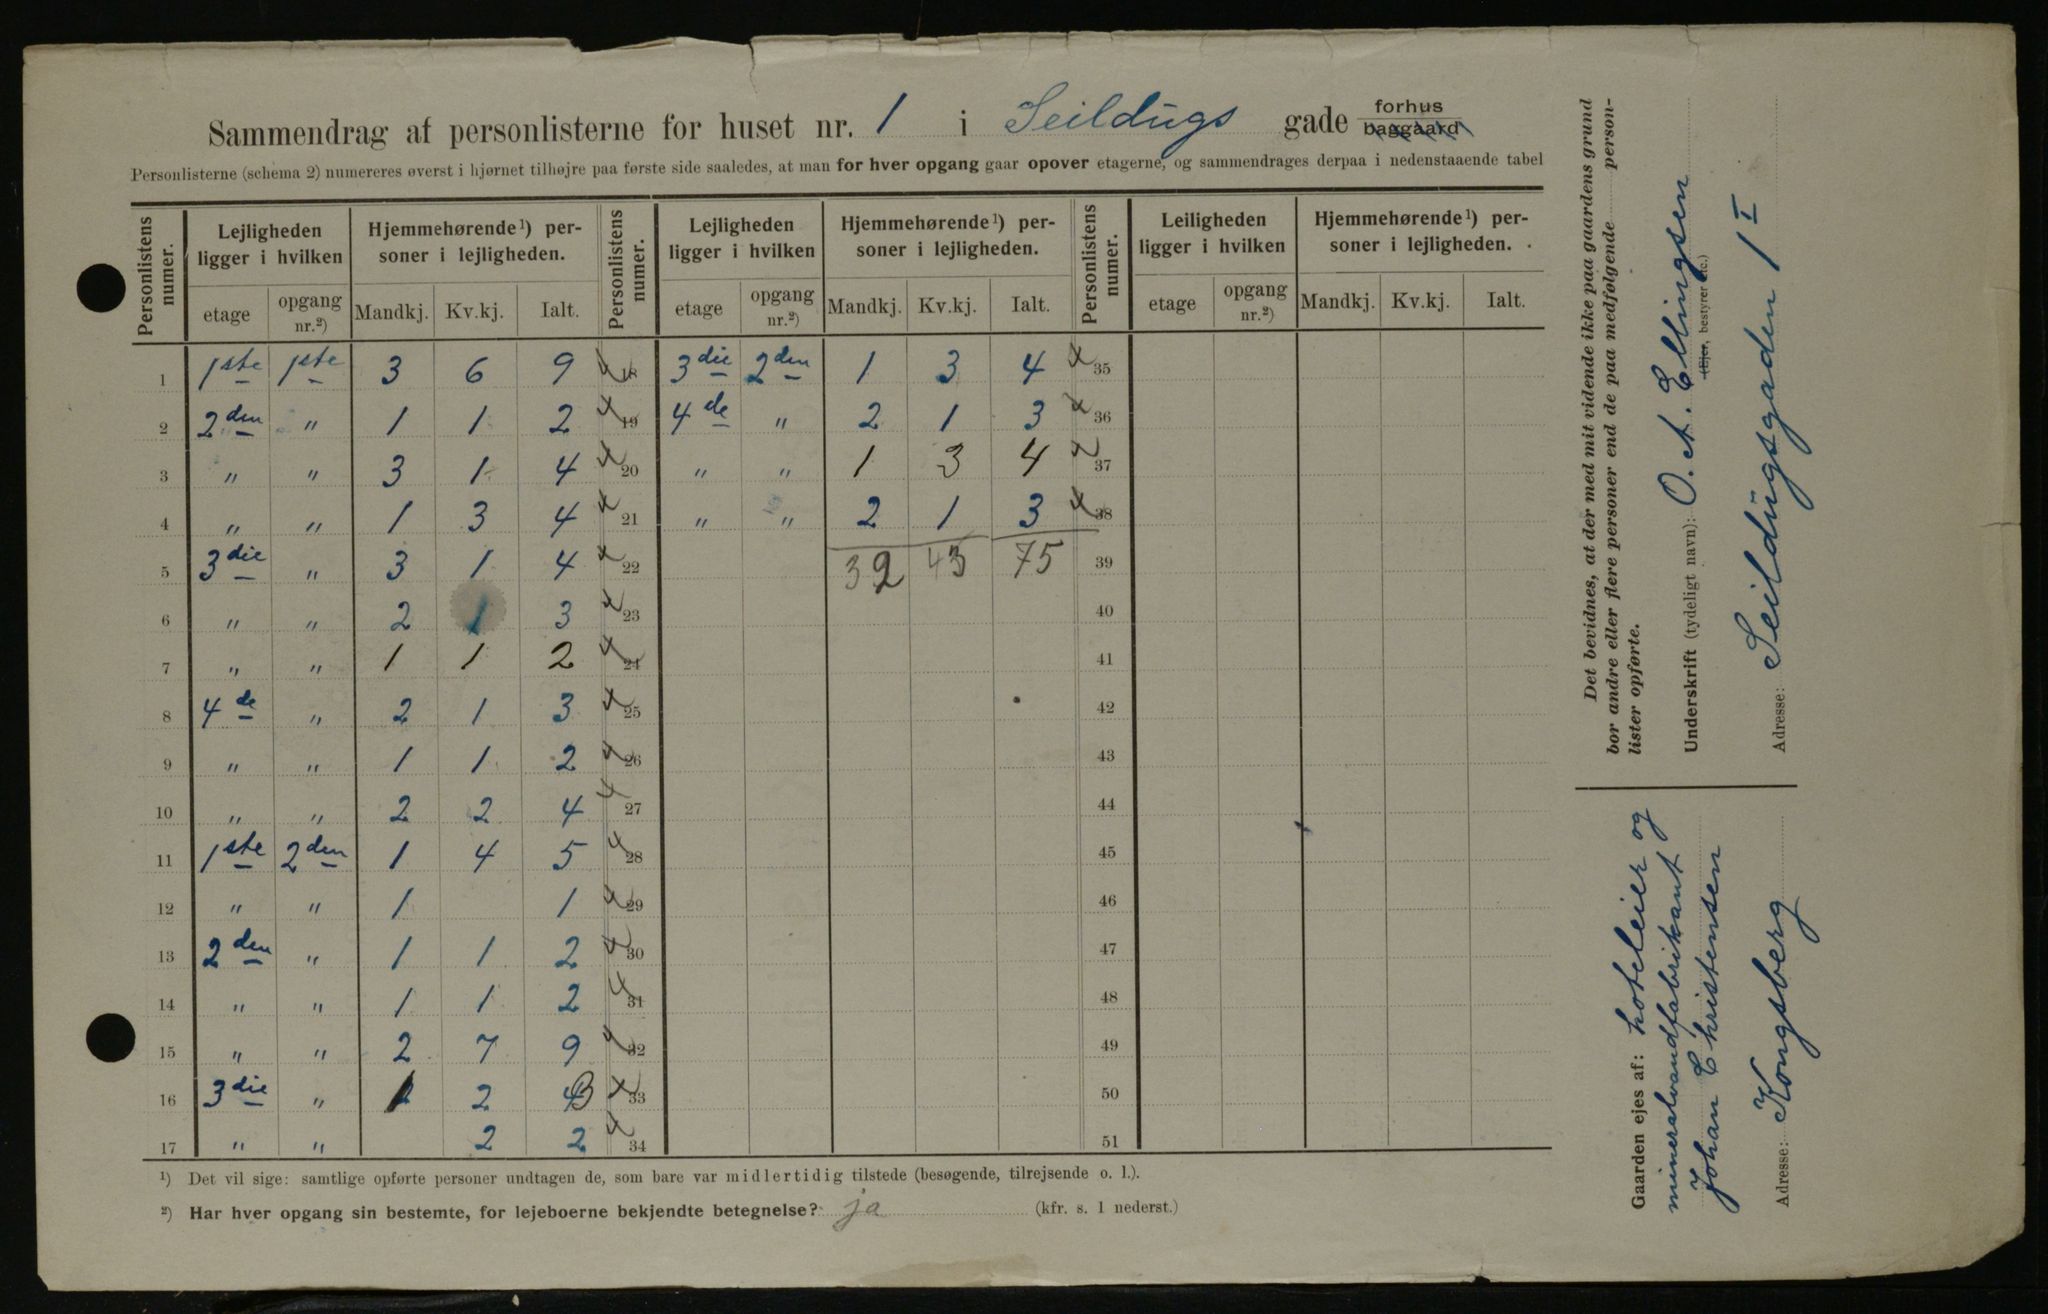 Sammendrag af personlisterne for huset nr. 1 i Seildugs gade forhus baggaard
Personlisterne (schema 2) numereres øverst i hjørnet tilhøjre paa første side saaledes, at man for hver opgang gaar opover etagerne, og sammendrages derpaa i nedenstaaende tabel
Personlistens numer. Lejligheden ligger i hvilken Hjemmehørende ¹) personer i lejligheden. Personlistens numer. Lejligheden ligger i hvilken Hjemmehørende ¹) personer i lejligheden. Personlistens numer. Leiligheden ligger i hvilken Hjemmehørende ¹) personer i lejligheden.
etage opgang nr.²) Mandkj. Kv.kj. Ialt. etage opgang nr.²) Mandkj. Kv.kj. Ialt. etage opgang nr.²) Mandkj. Kv.kj. Ialt.
1 1ste 1ste 3 6 9 18 3die 2den 1 3 4 35
2 2den " 1 1 2 19 4de " 2 1 3 36
3 " " 3 1 4 20 " " 1 3 4 37
4 " " 1 3 4 21 " " 2 1 3 38
5 3die " 3 1 4 22 32 43 75 39
6 " " 2 1 3 23 40
7 " " 1 1 2 24 41
8 4de " 2 1 3 25 42
9 " " 1 1 2 26 43
10 " " 2 2 4 27 44
11 1ste 2den 1 4 5 28 45
12 " " 1 1 29 46
13 2den " 1 1 2 30 47
14 " " 1 1 2 31 48
15 " " 2 7 9 32 49
16 3die " 1 2 3 33 50
17 " " 2 2 34 51
¹) Det vil sige: samtlige opførte personer undtagen de, som bare var midlertidig tilstede (besøgende, tilrejsende o. l.).
²) Har hver opgang sin bestemte, for lejeboerne bekjendte betegnelse? ja (kfr. s. 1 nederst.)
Det bevidnes, at der med mit vidende ikke paa gaardens grund
bor andre eller flere personer end de paa medfølgende person-
lister opførte.
Underskrift (tydeligt navn): O. A. Ellingsen
(Ejer, bestyrer etc.)
Adresse: Seildugsgaden 1 I
Gaarden ejes af: hoteleier og
mineralvandfabrikant
Johan Christensen
Adresse: Kongsberg